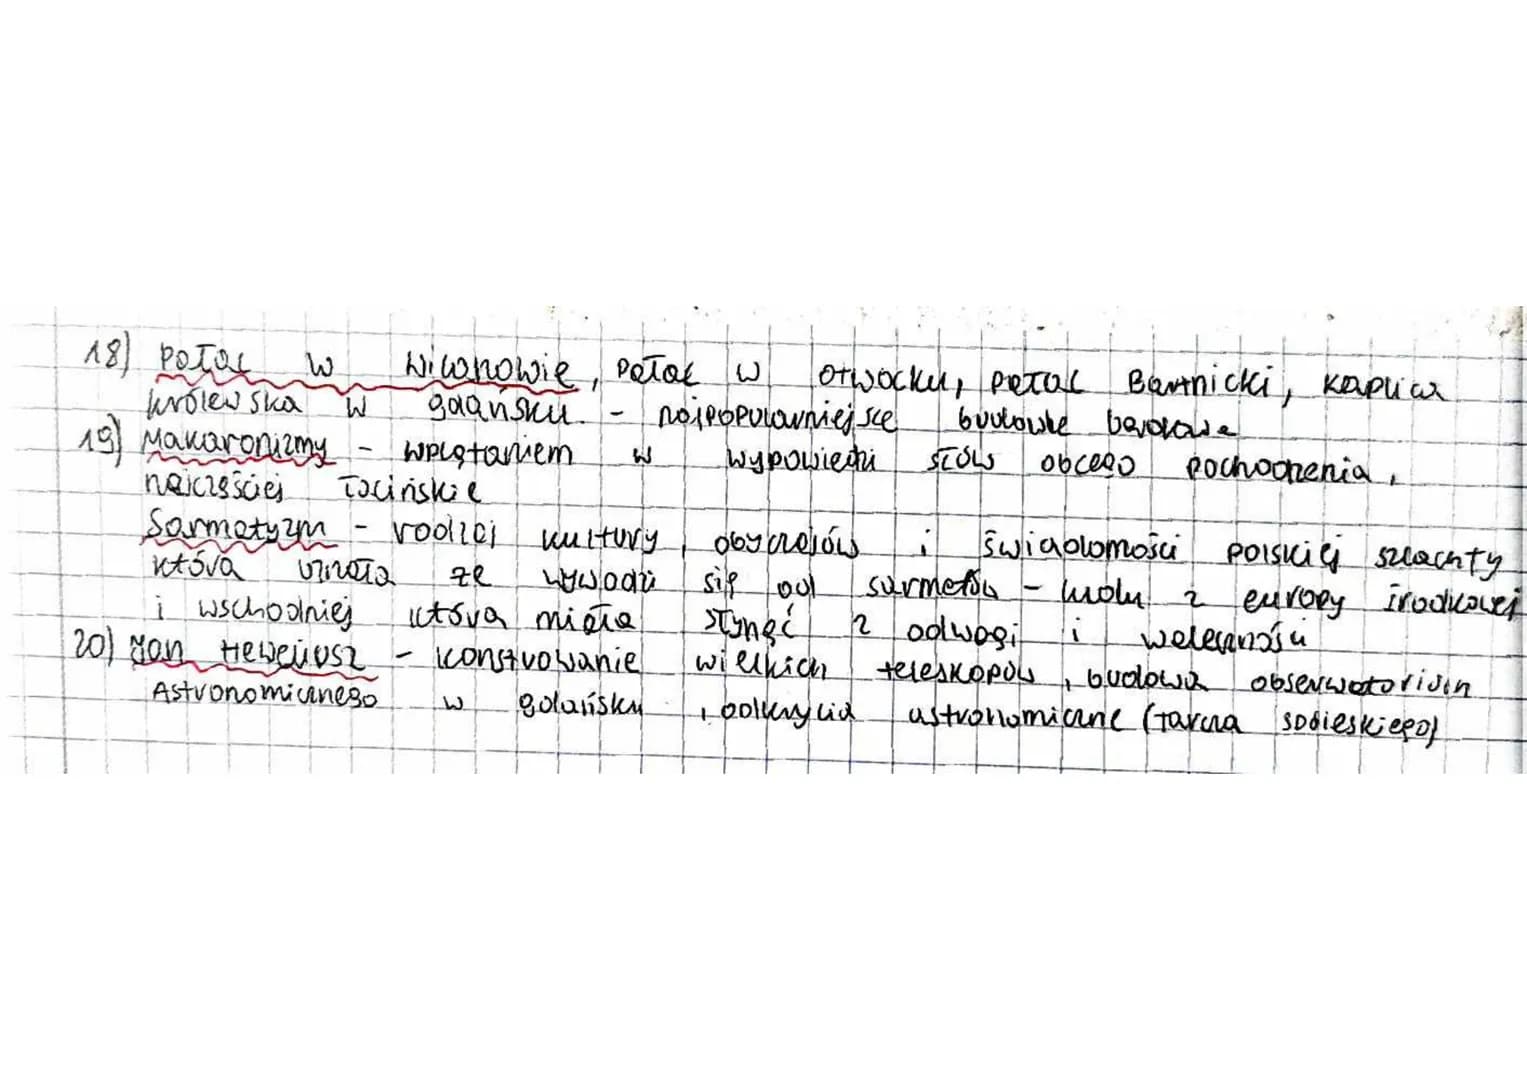 18) Pałac w Wilanowie, Pałac w Otwocku, Pałac Barnicki, Kaplica
królewska w gdańsku. - najpopularniejsze budowle barokowe
19) Makaronizmy - wplątaniem w wypowiedzi słów obcego pochodzenia,
najczęściej łacińskie
Sarmatyzm - rodzaj kultury, obyczajów i świadomości polskiej szlachty
która uznała że wywodzi się od sarmatów - ludu z europy środkowej
i wschodniej która miała słynąć z odwagi i waleczności
20) Jan Heweliusz - konstruowanie wielkich teleskopów, budowa obserwatorium
Astronomicznego w gdańsku, odkrycia astronomiczne (tarcza sobieskiego)